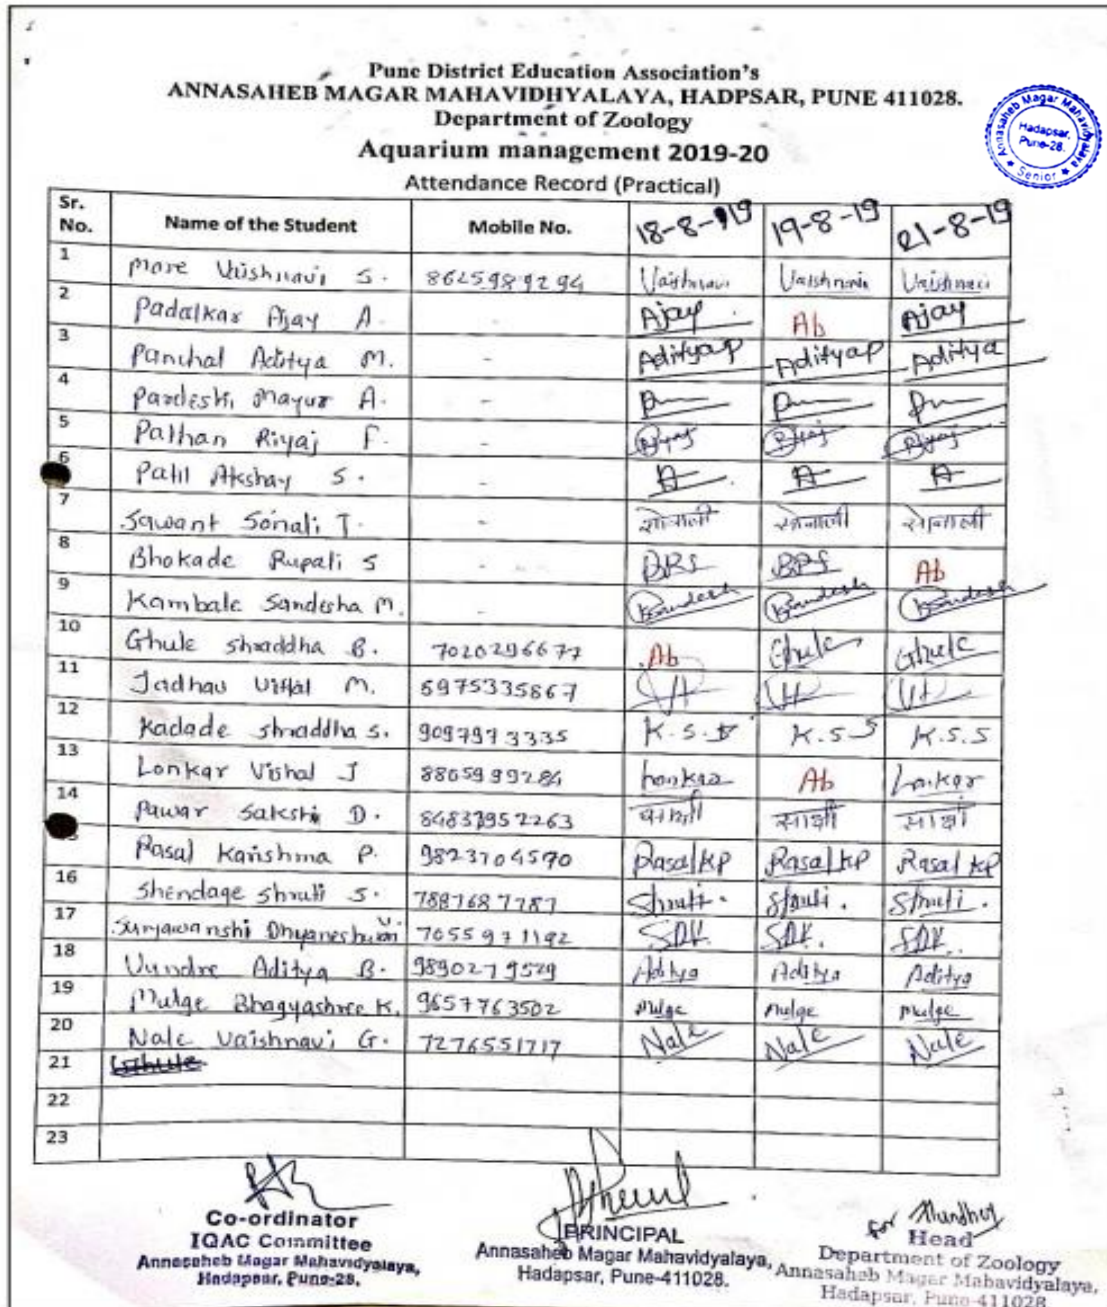 Pune District Education Association's
ANNASAHEB MAGAR MAHAVIDHYALAYA, HADPSAR, PUNE 411028.
Department of Zoology
Aquarium management 2019-20
Attendance Record (Practical)
Annasaheb Magar Mahavidyalaya Hadapsar, Pune-28. Senior
Sr. No. Name of the Student Mobile No. 18-8-19 19-8-19 21-8-19
1 More Vaishnavi S. 8625989294 Vaishnavi Vaishnavi Vaishnavi
2 Padalkar Ajay A. Ajay Ab Ajay
3 Panchal Aditya M. - AdityaP AdityaP Aditya
4 Pardeshi Mayur A. -
5 Pathan Riyaj F. - Riyaj Riyaj Riyaj
6 Patil Akshay S. - A A A
7 Sawant Sonali T. - सोनाली सोनाली सोनाली
8 Bhokade Rupali S - BRS BRS Ab
9 Kambale Sandesha M. -
10 Ghule Shraddha B. 7020296677 Ab Ghule Ghule
11 Jadhav Vitthal M. 8975335867
12 Kadade Shraddha S. 9097973335 K.S.S K.S.S K.S.S
13 Lonkar Vishal J 8805999284 Lonkar Ab Lonkar
14 Pawar Sakshi D. 84837952263 साक्षी साक्षी साक्षी
Rasal Karishma P. 9823704590 RasalKP RasalKP Rasal KP
16 Shendage Shruti S. 7887687787 Shruti. Shruti. Shruti.
17 Suryawanshi Dhyaneshwari V. 7055971192 SDV. SDV. SDV.
18 Vundre Aditya B. 9890279529 Aditya Aditya Aditya
19 Mulge Bhagyashree K. 9657763502 Mulge Mulge Mulge
20 Nale Vaishnavi G. 7276551717 Nale Nale Nale
21 Ghule
22
23
Co-ordinator
IQAC Committee
Annasaheb Magar Mahavidyalaya,
Hadapsar, Pune-28.
PRINCIPAL
Annasaheb Magar Mahavidyalaya,
Hadapsar, Pune-411028.
for
Head
Department of Zoology
Annasaheb Magar Mahavidyalaya,
Hadapsar, Pune-411028